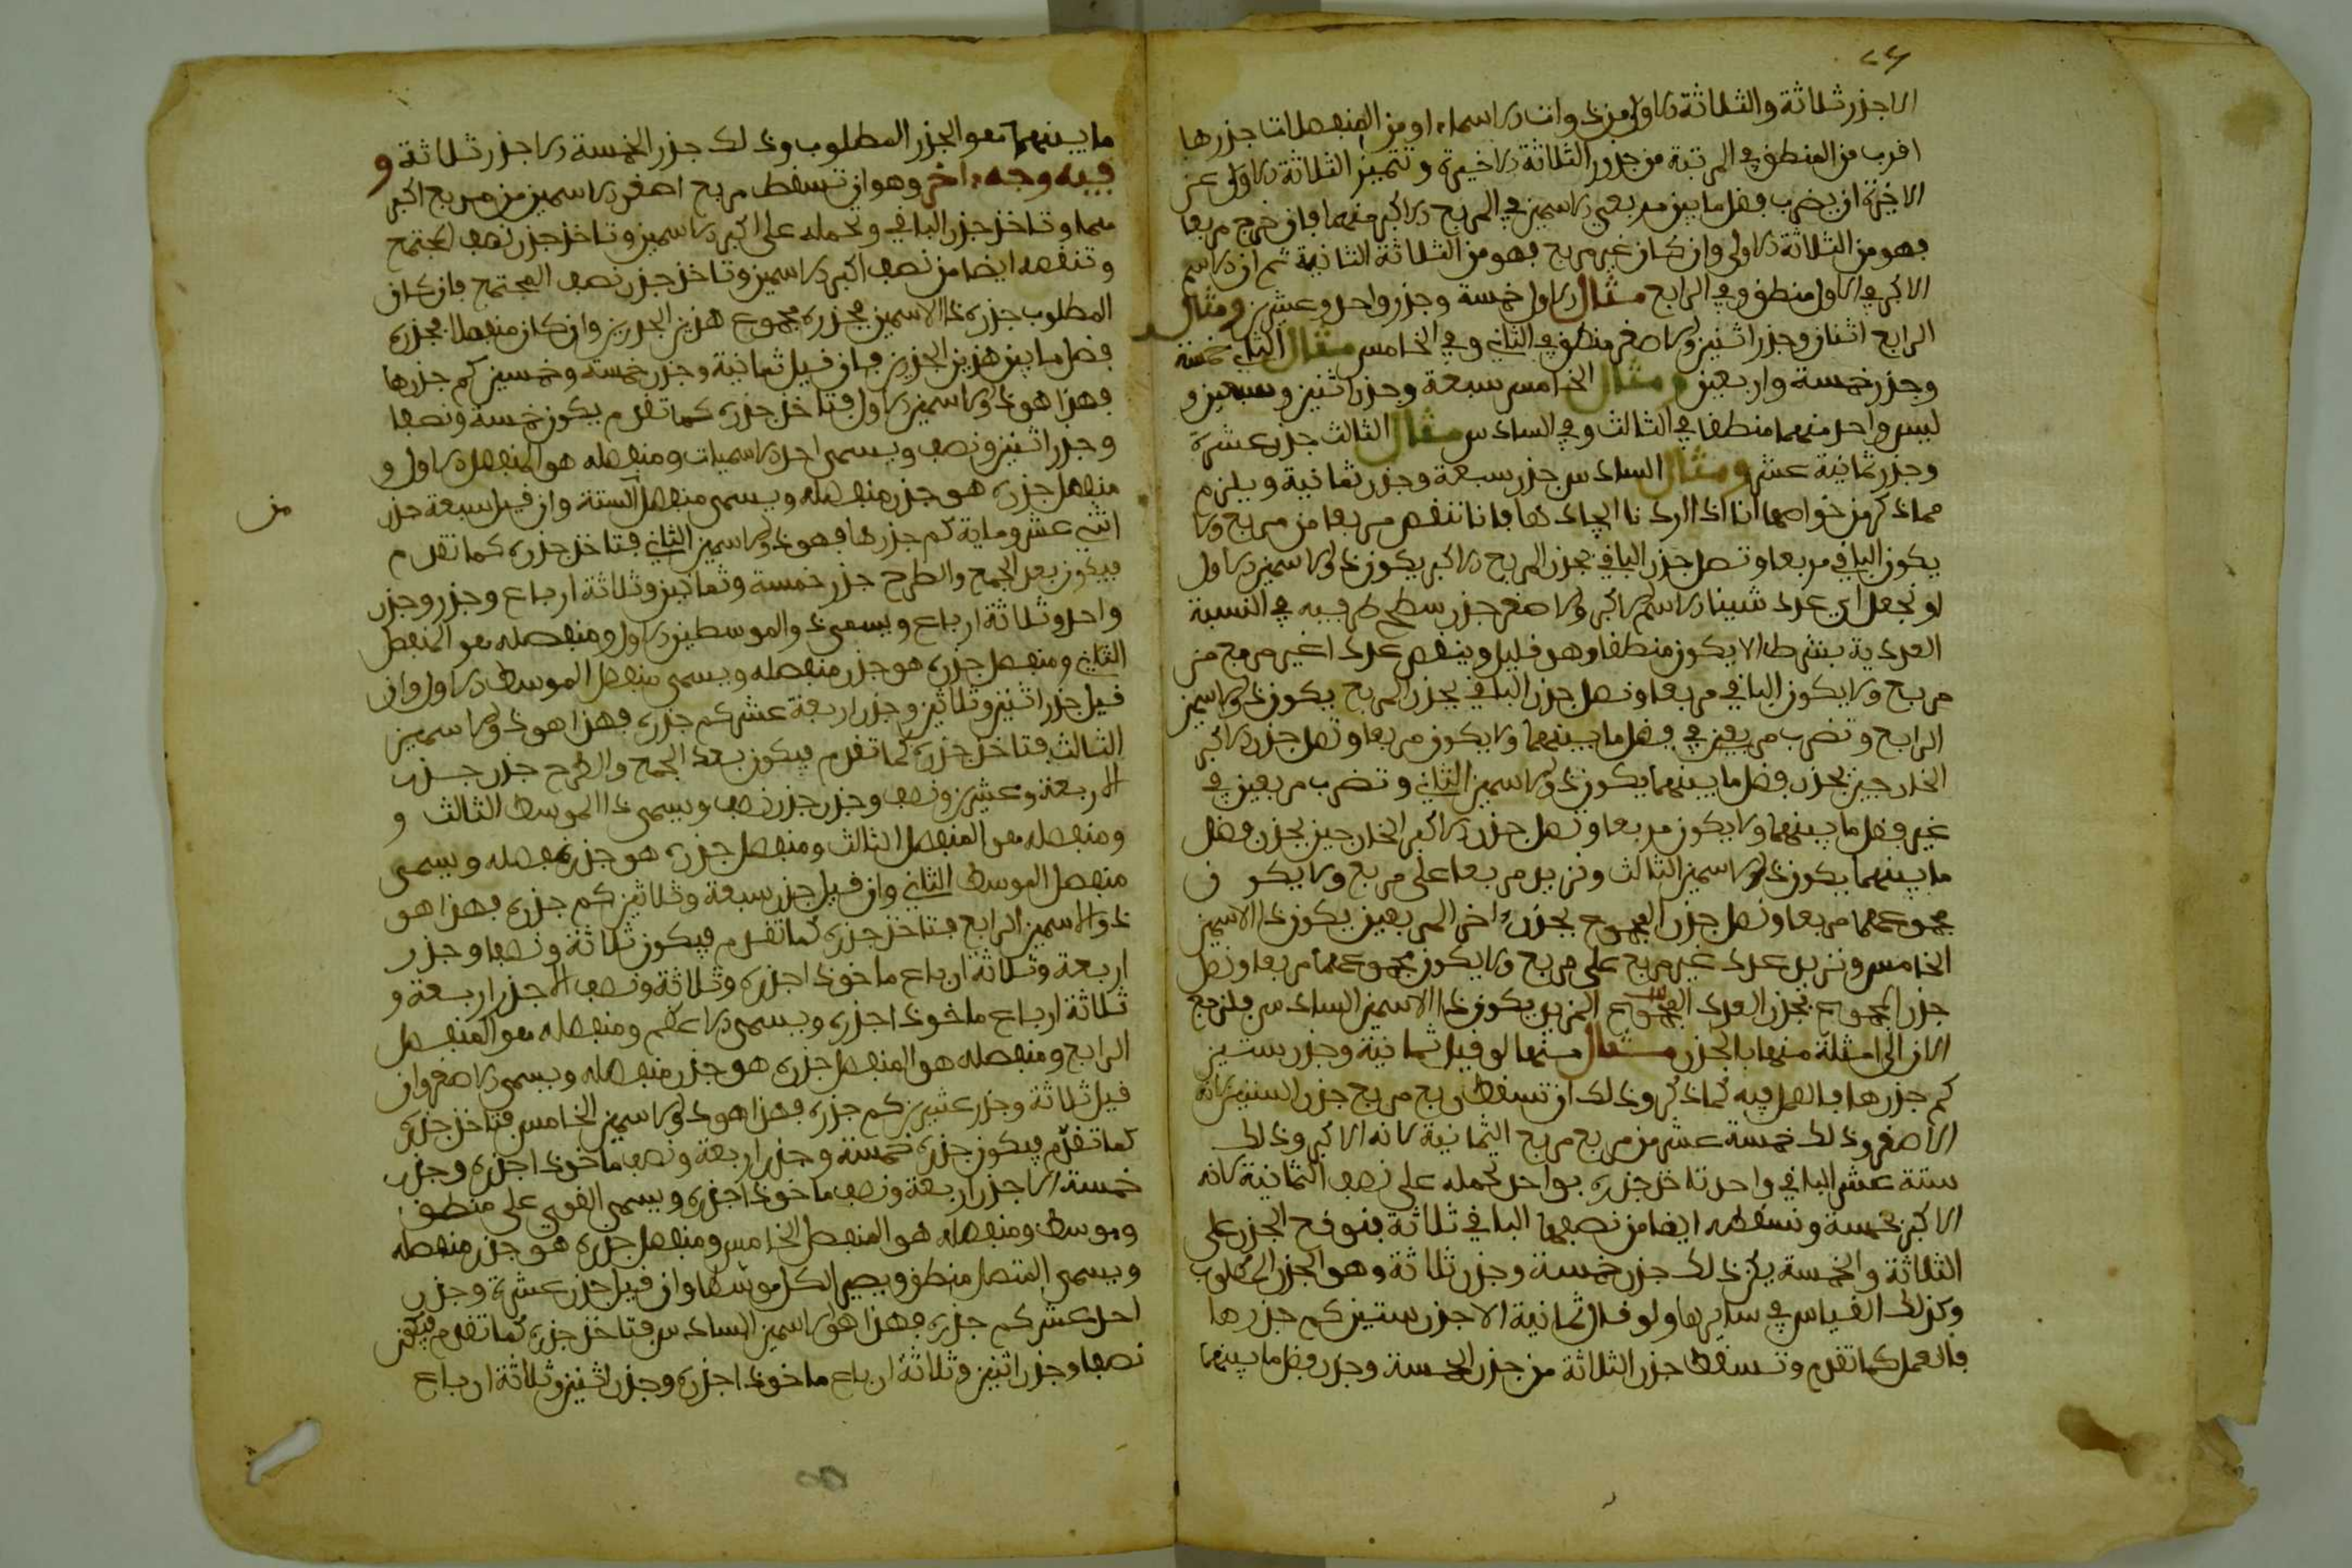 الا جزر ثلاثة والثلاثة الاولى من ذوات الاسماء او من المنفصلات جذرها
اقرب من المنطق في المرتبة من جذور الثلاثة الاخيرة وتتميز الثلاثة الاولى عن
الاخيرة ان يضرب فضل ما بين مربعي الاسمين في المربع الاكبر منهما فان خرج مربعا
فهو من الثلاثة الاولى وان كان غير مربع فهو من الثلاثة الثانية ثم ان الاسم
الاكبر في الاول منطق وفي الرابع مثال الاول خمسة وجذر واحد وعشرين ومثال
الرابع اثنان وجذر اثنين والاصغر منطق في الثاني وفي الخامس مثال الثاني خمسة
وجذر خمسة واربعين ومثال الخامس سبعة وجذر اثنين وسبعين و
ليس واحد منهما منطقا في الثالث وفي السادس مثال الثالث جذر عشرة
وجذر ثمانية عشر ومثال السادس جذر سبعة وجذر ثمانية ويلزم
مما ذكر من خواصها انا اذا اردنا ايجادها فانا ننقص مربعا من مربع ولا
يكون الباقي مربعا وتصل جذر الباقي بجذر المربع الاكبر يكون ذو الاسمين الاول
او نجعل اي عدد شينا الاسم الاكبر والاصغر جذر سطح طرفيه في النسبة
العددية بشرط الا يكون منطقا وهو قليل وينقص عددا غير مربع من
مربع ولا يكون الباقي مربعا ونصل جذر الباقي بجذر المربع يكون ذو الاسمين
الرابع وتضرب مربعين في فضل ما بينهما ولا يكون مربعا وتصل جذر الاكبر
الخارجين بجذر فضل ما بينهما يكون ذو الاسمين الثاني وتضرب مربعين في
غير فضل ما بينهما ولا يكون مربعا وتصل جذر الاكبر الخارجين بجذر فضل
ما بينهما يكون ذو الاسمين الثالث ونزيد مربعا على مربع ولا يكون
مجموعهما مربعا ونصل جذر المجموع بجذر اخر المربعين يكون ذا الاسمين
الخامس ونزيد عدد غير مربع على مربع ولا يكون مجموعهما مربعا ونصل
جذر المجموع بجذر العدد المزيد يكون ذا الاسمين السادس فلنرجع
الان الى امثلة منها بالجذر مثال منها لو قيل ثمانية وجذر ستين
كم جذرها فالعمل فيه كما ذكر وذلك ان تسقط ربع مربع جذر الستين لانه
الاصغر وذلك خمسة عشر من ربع مربع الثمانية لانه الاكبر وذلك
ستة عشر الباقي واحد تاخذ جذره بواحد تحمله على نصف الثمانية لانه
الاكبر بخمسة وتسقطه ايضا من نصفها الباقي ثلاثة فتوقع الجذر على
الثلاثة والخمسة يكن ذلك جذر خمسة وجذر ثلاثة وهو الجذر المطلوب
وكذلك القياس في سايرها ولو قال ثمانية الا جذر ستين كم جذرها
فالعمل كما تقدم وتسقط جذر الثلاثة من جذر الخمسة وجذر فضل ما بينهما
ما بينهما هو الجذر المطلوب وذلك جذر الخمسة الا جذر ثلاثة و
فيه وجه اخر وهو ان تسقط مربع اصغر الاسمين من مربع اكبر
هما وتاخذ جذر الباقي وتحمله على اكبر الاسمين وتاخذ جذر نصف المجتمع
وتنقصه ايضا من نصف اكبر الاسمين وتاخذ جذر نصف المجتمع فان كان
المطلوب جذره ذا الاسمين فجذره مجموع هذين الجذرين وان كان منفصلا فجذره
فضل ما بين هذين الجذرين فان قيل ثمانية وجذر خمسة وخمسين كم جذرها
فهذا هو ذو الاسمين الاول فتاخذ جذره كما تقدم يكون خمسة ونصفا
وجذر اثنين ونصف ويسمى احد الاسميات ومنفصله هو المنفصل الاول و
منفصل جذره هو جذر منفصله ويسمى منفصل الستة وان قيل سبعة جذر
من
اثني عشر وماية كم جذرها فهو ذو الاسمين الثاني فتاخذ جذره كما تقدم
فيكون بعد الجمع والطرح جذر خمسة وثمانين وثلاثة ارباع وجذر وجذر
واحد وثلاثة ارباع ويسمى ذو الموسطين الاول ومنفصله هو المنفصل
الثاني ومنفصل جذره هو جذر منفصله ويسمى منفصل الموسط الاول وان
قيل جذر اثنين وثلاثين وجذر اربعة عشر كم جذره فهذا هو ذو الاسمين
الثالث فتاخذ جذره كما تقدم فيكون بعد الجمع والطرح جذر جذر
اربعة وعشرين ونصف وجذر جذر نصف ويسمى ذا الموسط الثالث و
ومنفصله هو المنفصل الثالث ومنفصل جذره هو جذر منفصله ويسمى
منفصل الموسط الثاني وان قيل جذر سبعة وثلاثين كم جذره فهذا هو
ذو الاسمين الرابع فتاخذ جذره كما تقدم فيكون ثلاثة ونصفا وجذر
اربعة وثلاثة ارباع ماخوذا جذره وثلاثة ونصف الا جذر اربعة و
ثلاثة ارباع ماخوذا جذره ويسمى الاعظم ومنفصله هو المنفصل
الرابع ومنفصله هو المنفصل جذره هو جذر منفصله ويسمى الاصغر وان
قيل ثلاثة وجذر عشرين كم جذره فهذا هو ذو الاسمين الخامس فتاخذ جذره
كما تقدم فيكون جذره خمسة وجذر اربعة ونصف ماخوذا جذره وجذر
خمسة الا جذر اربعة ونصف ماخوذا جذره ويسمى القوي على منطق
وموسط ومنفصله هو المنفصل الخامس ومنفصل جذره هو جذر منفصله
ويسمى المتصل منطق ويصير الكل موسطا وان قيل جذر عشرة وجذر
احد عشر كم جذره فهذا هو الاسمين السادس فتاخذ جذره كما تقدم فيكون
نصفا وجذر اثنين وثلاثة ارباع ماخوذا جذره وجذر اثنين وثلاثة ارباع